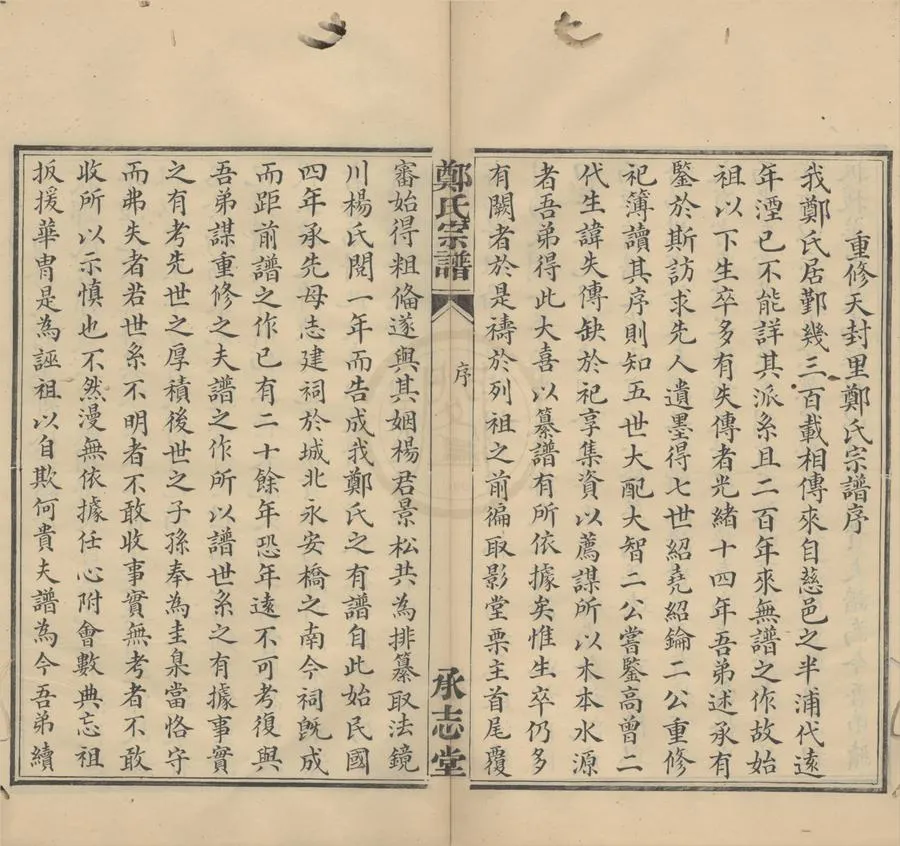 重修天封里鄭氏宗譜序
我鄭氏居鄞幾三百載相傳來自慈邑之半浦代遠
年湮已不能詳其派系且二百年來無譜之作故始
祖以下生卒多有失傳者光緒十四年吾弟述承有
鑒於斯訪求先人遺墨得七世紹堯紹鑰二公重修
祀簿讀其序則知五世大配大智二公嘗鑒高曾二
代生諱失傳缺於祀享集資以薦謀所以木本水源
者吾弟得此大喜以纂譜有所依據矣惟生卒仍多
有闕者於是禱於列祖之前徧取影堂栗主首尾覆
鄭氏宗譜
序
承志堂
審始得粗俻遂與其姻楊君景松共為排纂取法鏡
川楊氏閱一年而告成我鄭氏之有譜自此始民國
四年承先母志建祠於城北永安橋之南今祠旣成
而距前譜之作已有二十餘年恐年遠不可考復與
吾弟謀重修之夫譜之作所以譜世系之有據事實
之有考先世之厚積後世之子孫奉為圭臬當恪守
而弗失者若世系不明者不敢收事實無考者不敢
收所以示慎也不然漫無依據任心附會數典忘祖
扳援華胄是為誣祖以自欺何貴夫譜為今吾弟續